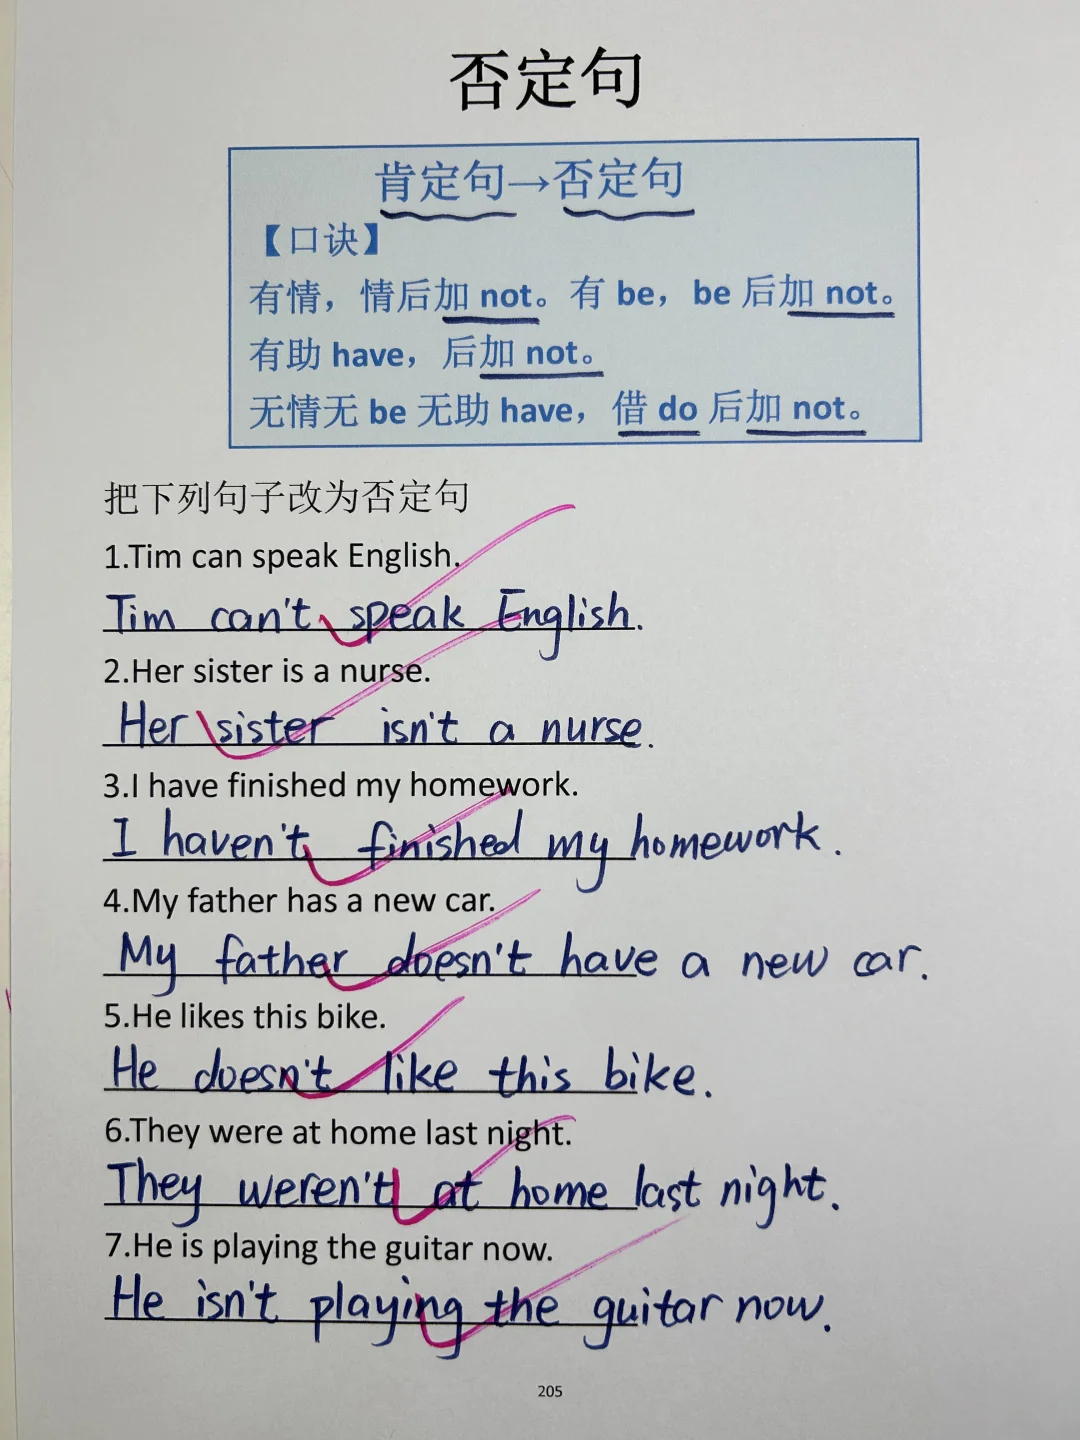 否定句
肯定句→否定句
【口诀】
有情，情后加 not。有 be，be 后加 not。
有助 have，后加 not。
无情无 be 无助 have，借 do 后加 not。
把下列句子改为否定句
1.Tim can speak English.
Tim can't speak English.
2.Her sister is a nurse.
Her sister isn't a nurse.
3.I have finished my homework.
I haven't finished my homework.
4.My father has a new car.
My father doesn't have a new car.
5.He likes this bike.
He doesn't like this bike.
6.They were at home last night.
They weren't at home last night.
7.He is playing the guitar now.
He isn't playing the guitar now.
205